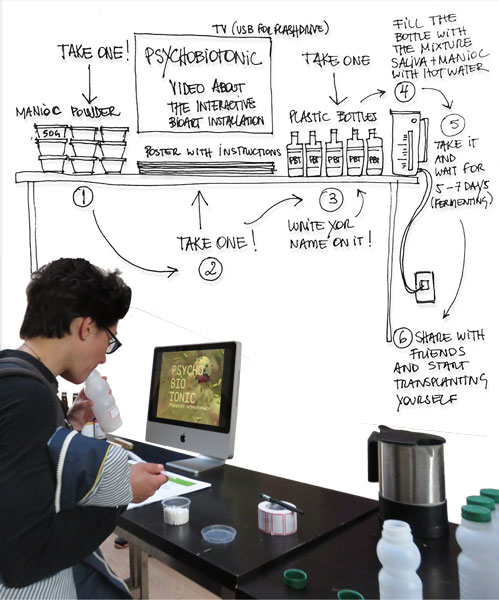 TV (USB FOR FLASHDRIVE)
TAKE ONE!
PSYCHOBIOTONIC
VIDEO ABOUT
THE INTERACTIVE
BIOART INSTALLATION
TAKE ONE
FILL THE
BOTTLE WITH
THE MIXTURE
SALIVA + MANIOC
WITH HOT WATER
4
MANIOC POWDER
50G
POSTER WITH INSTRUCTIONS
PLASTIC BOTTLES
PBT PBT PBT PBT PBT
5
TAKE IT
AND
WAIT FOR
5-7 DAYS
(FERMENTING)
1
TAKE ONE!
2
3
WRITE YOR
NAME ON IT!
6 SHARE WITH
FRIENDS
AND START
TRANSPLANTING
YOURSELF
PSYCHO
BIO
TONIC